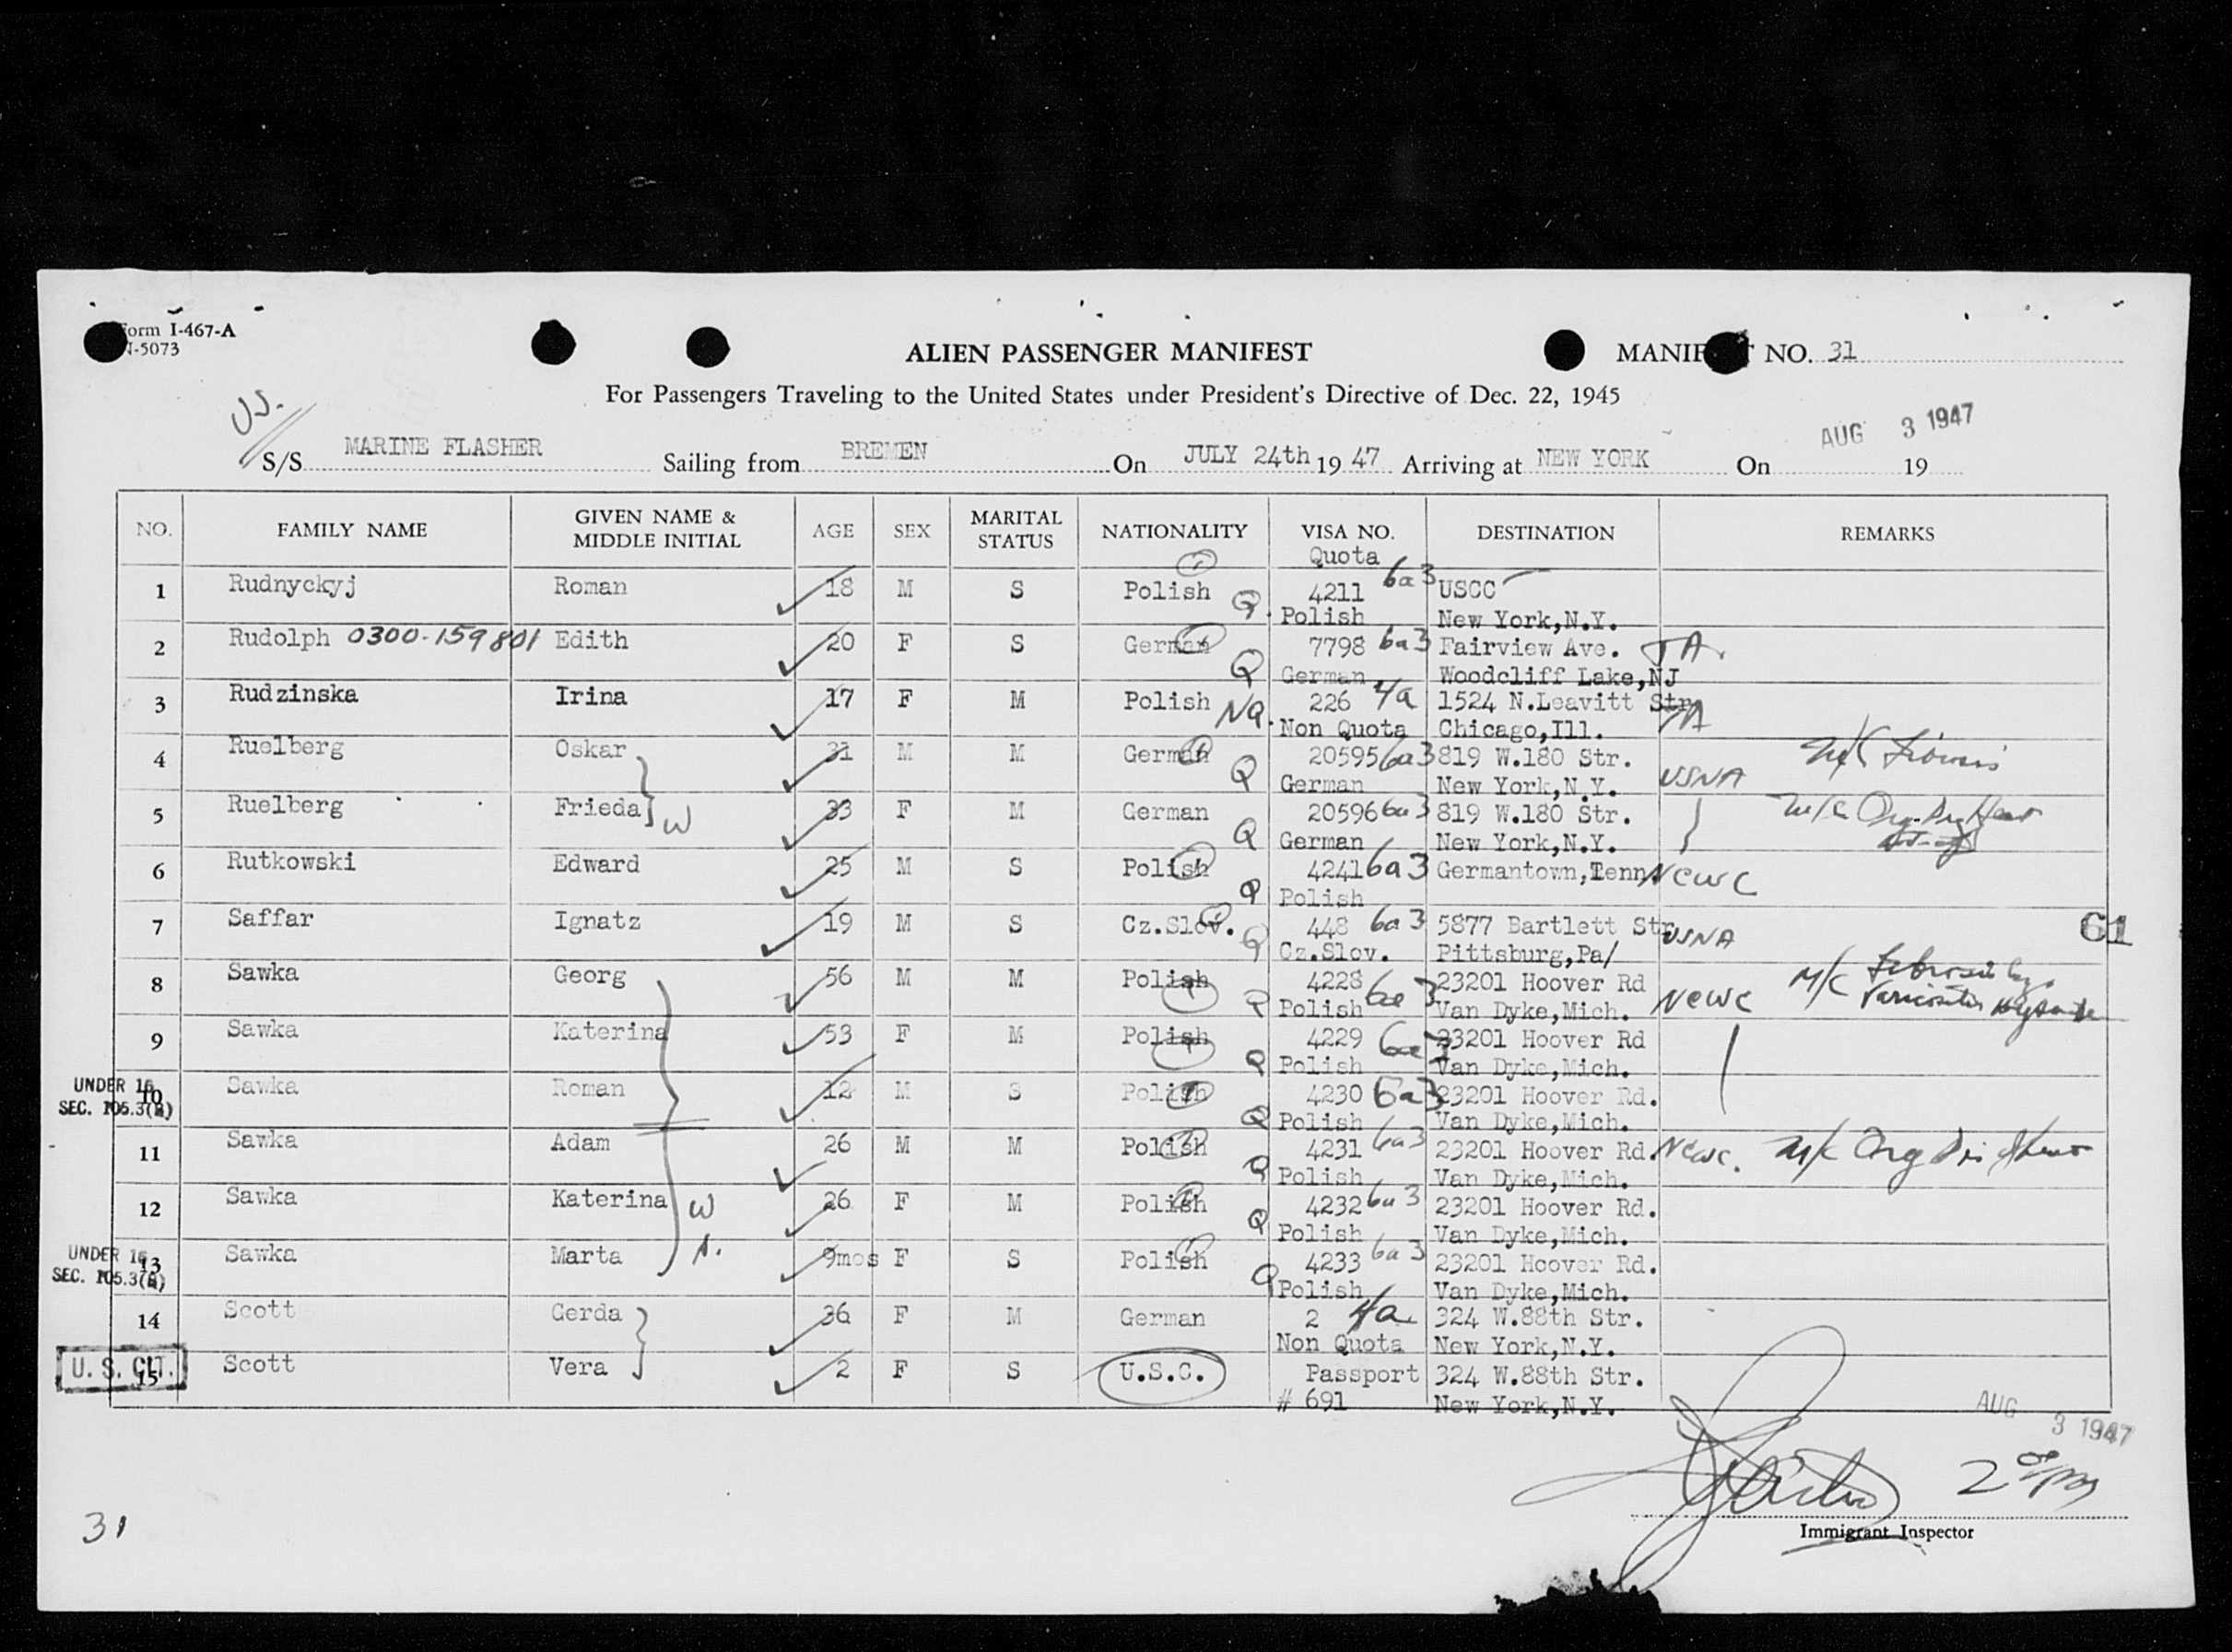 Form I-467-A
N-5073
ALIEN PASSENGER MANIFEST
MANIFEST NO. 31
For Passengers Traveling to the United States under President's Directive of Dec. 22, 1945
U.S.
AUG 3 1947
S/S MARINE FLASHER Sailing from BREMEN On JULY 24th 19 47 Arriving at NEW YORK On 19
NO. FAMILY NAME GIVEN NAME & MIDDLE INITIAL AGE SEX MARITAL STATUS NATIONALITY VISA NO. DESTINATION REMARKS
Quota
1 Rudnyckyj Roman 18 M S Polish 4211 6a3 USCC
Q. Polish New York,N.Y.
2 Rudolph 0300-159801 Edith 20 F S German 7798 6a3 Fairview Ave. TA.
Q German Woodcliff Lake,NJ
3 Rudzinska Irina 17 F M Polish 226 4a 1524 N.Leavitt Str
NQ. Non Quota Chicago,Ill. TA
4 Ruelberg Oskar 31 M M German 20595 6a3 819 W.180 Str. M/C
Q German New York,N.Y. USNA
5 Ruelberg Frieda W 33 F M German 20596 6a3 819 W.180 Str. M/C
Q German New York,N.Y.
6 Rutkowski Edward 25 M S Polish 4241 6a3 Germantown,Tenn NCWC
Q Polish
7 Saffar Ignatz 19 M S Cz.Slov. 448 6a3 5877 Bartlett Str USNA 61
Q Cz.Slov. Pittsburg,Pa/
8 Sawka Georg 56 M M Polish 4228 6a3 23201 Hoover Rd M/C
Q Polish Van Dyke,Mich. NCWC
9 Sawka Katerina 53 F M Polish 4229 6a3 23201 Hoover Rd
Q Polish Van Dyke,Mich.
UNDER 16 10 Sawka Roman 12 M S Polish 4230 6a3 23201 Hoover Rd.
SEC. 105.3(a) Q Polish Van Dyke,Mich.
11 Sawka Adam 26 M M Polish 4231 6a3 23201 Hoover Rd. NCWC. M/C
Q Polish Van Dyke,Mich.
12 Sawka Katerina W 26 F M Polish 4232 6a3 23201 Hoover Rd.
Q Polish Van Dyke,Mich.
UNDER 16 13 Sawka Marta 9mos F S Polish 4233 6a3 23201 Hoover Rd.
SEC. 105.3(a) Q Polish Van Dyke,Mich.
14 Scott Gerda 36 F M German 2 4a 324 W.88th Str.
Non Quota New York,N.Y.
U. S. CIT. 15 Scott Vera 2 F S U.S.C. Passport 324 W.88th Str.
# 691 New York,N.Y.
AUG 3 1947
31
Immigrant Inspector